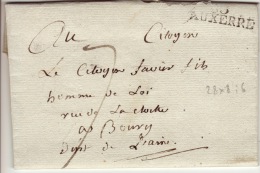 AUXERRE
Au Citoyen
Le Citoyen Javier fils
homme de Loi
rue de La cloche
a Bourg
dept de L'ain
7